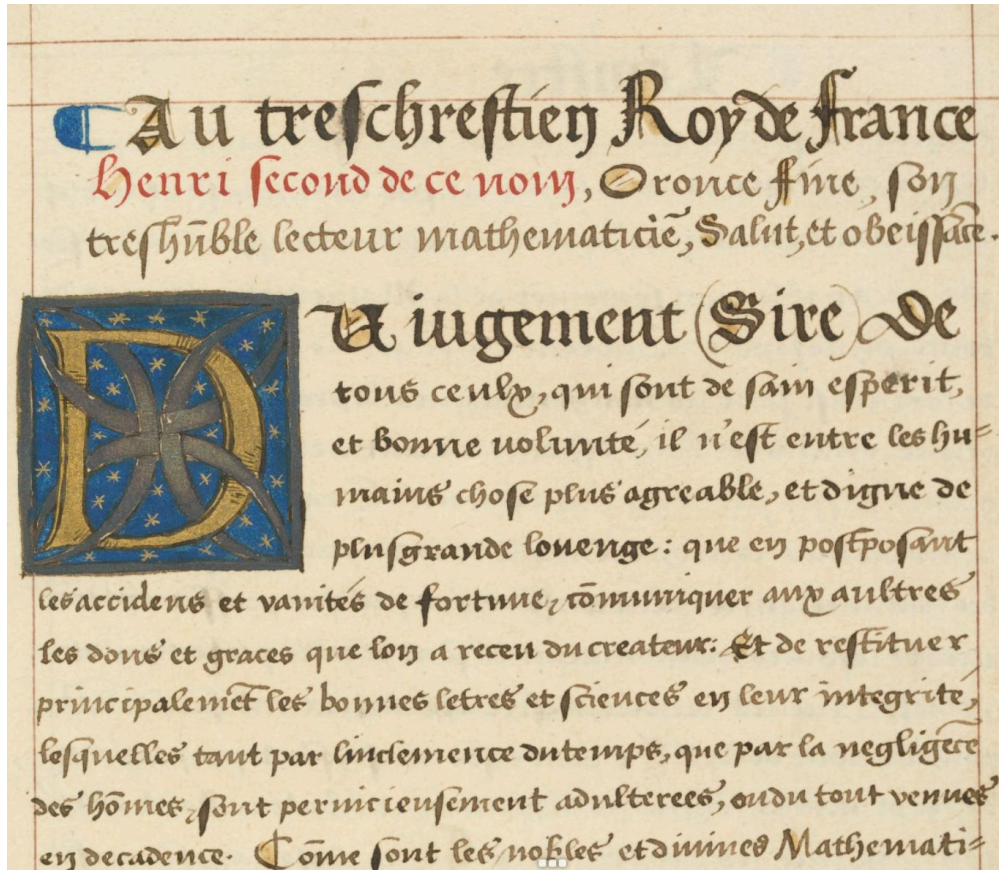 ¶Au treschrestien Roy de france
Henri second de ce nom, Oronce fine, son
treshūble lecteur mathematiciē, Salut, et obeissāce.
DU iugement (Sire) de
tous ceulx, qui sont de sain esperit,
et bonne volunté, il n'est entre les hu=
mains chose plus agreable, et digne de
plusgrande louenge: que en postposant
les accidens et vanités de fortune, cōmuniquer aux aultres
les dons et graces que lon a receu du createur: Et de restituer
principalemēt les bonnes letres et sciences en leur integrité,
lesquelles tant par linclemence du temps, que par la negligēce
des hōmes, sont pernicieusement adulterees, ou du tout venues
en decadence. Cōme sont les nobles et divines Mathemati=